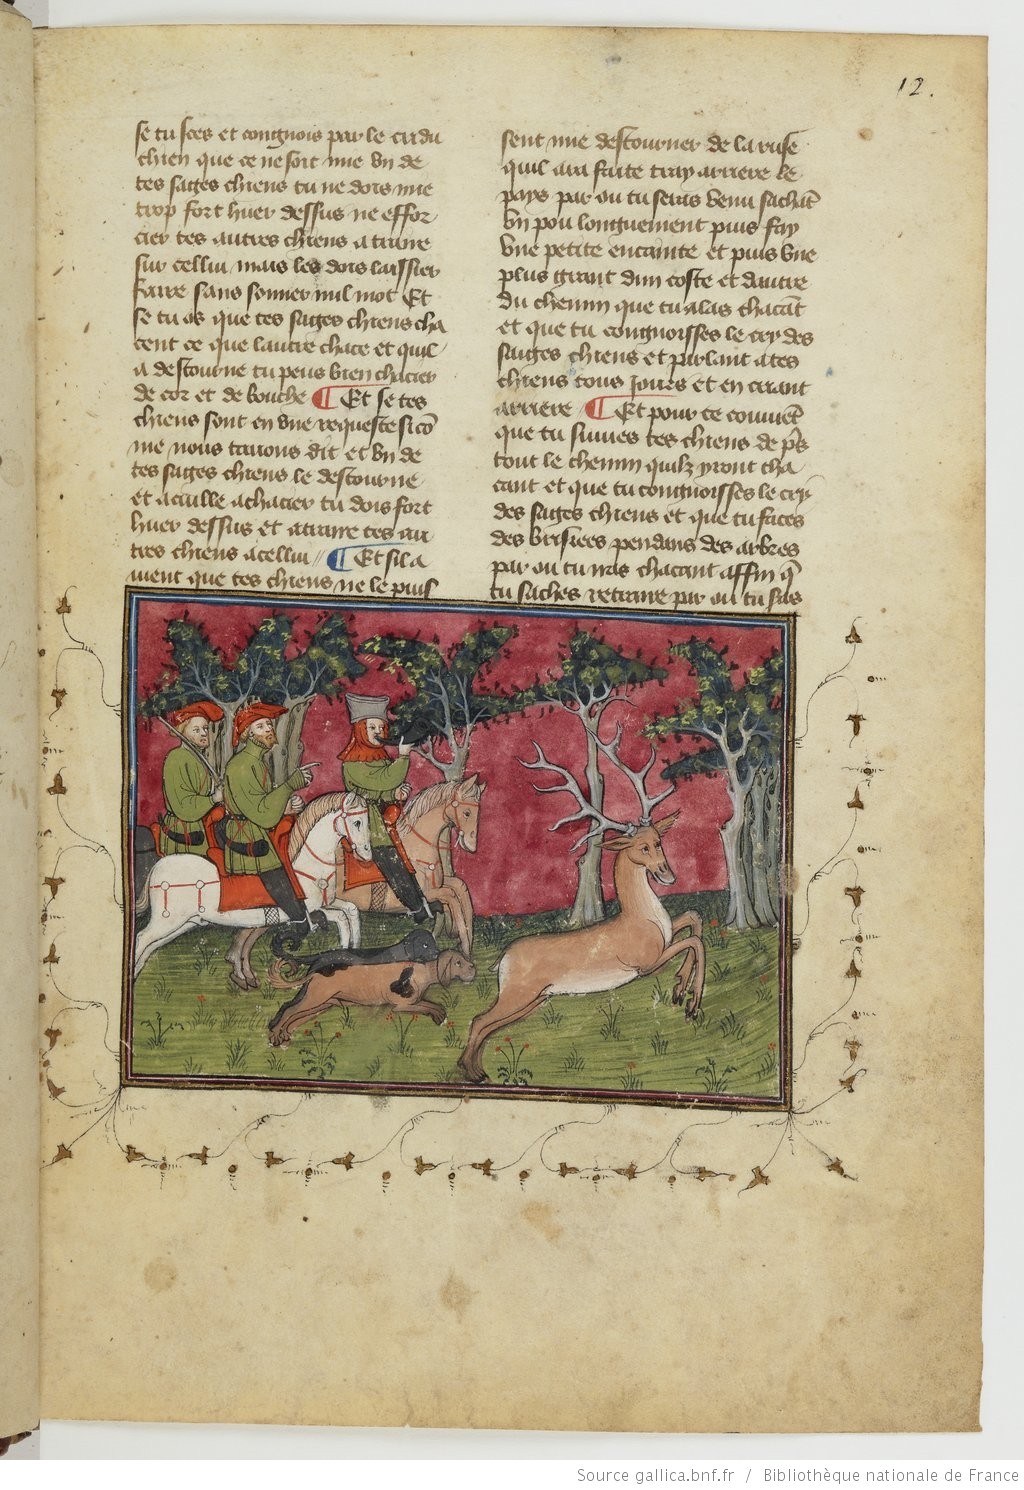 12.
se tu sces et congnois par le cri du
chien que ce ne soit mie vn de
tes sages chiens tu ne dois mie
trop fort huer dessus ne effor
cier tes autres chiens a traire
sur cellui mais les dois laissier
faire sans sonner nul mot Et
se tu os que tes sages chiens cha
cent ce que lautre chace et quil
a destourne tu peus bien chacier
de cor et de bouche ¶ Et se tes
chiens sont en vne requeste si cō
me nous tauons dit et vn de
tes sages chiens le destourne
et acuille a chacier tu dois fort
huer dessus et a traire tes au
tres chiens a cellui // ¶ Et sil a
uient que tes chiens ne le puis
sent mie destourner de la ruse
quil ara faite tray arriere le
pays par ou tu seras venu sachāt
vn pou longuement puis fay
vne petite encainte et puis vne
plus grant dun coste et dautre
du chemin que tu alas chacāt
et que tu congnoisses le cry des
saiges chiens et parlant a tes
chiens tous jours et en criant
arriere ¶ Et pour ce couuiēt
que tu suiues tes chiens de p̄s
tout le chemin quilz yront cha
cant et que tu congnoisses le cry
des sages chiens et que tu faces
des brisiees pendans des arbres
par ou tu iras chacant affin q̄
tu saches retraire par ou tu sas
Source gallica.bnf.fr / Bibliothèque nationale de France